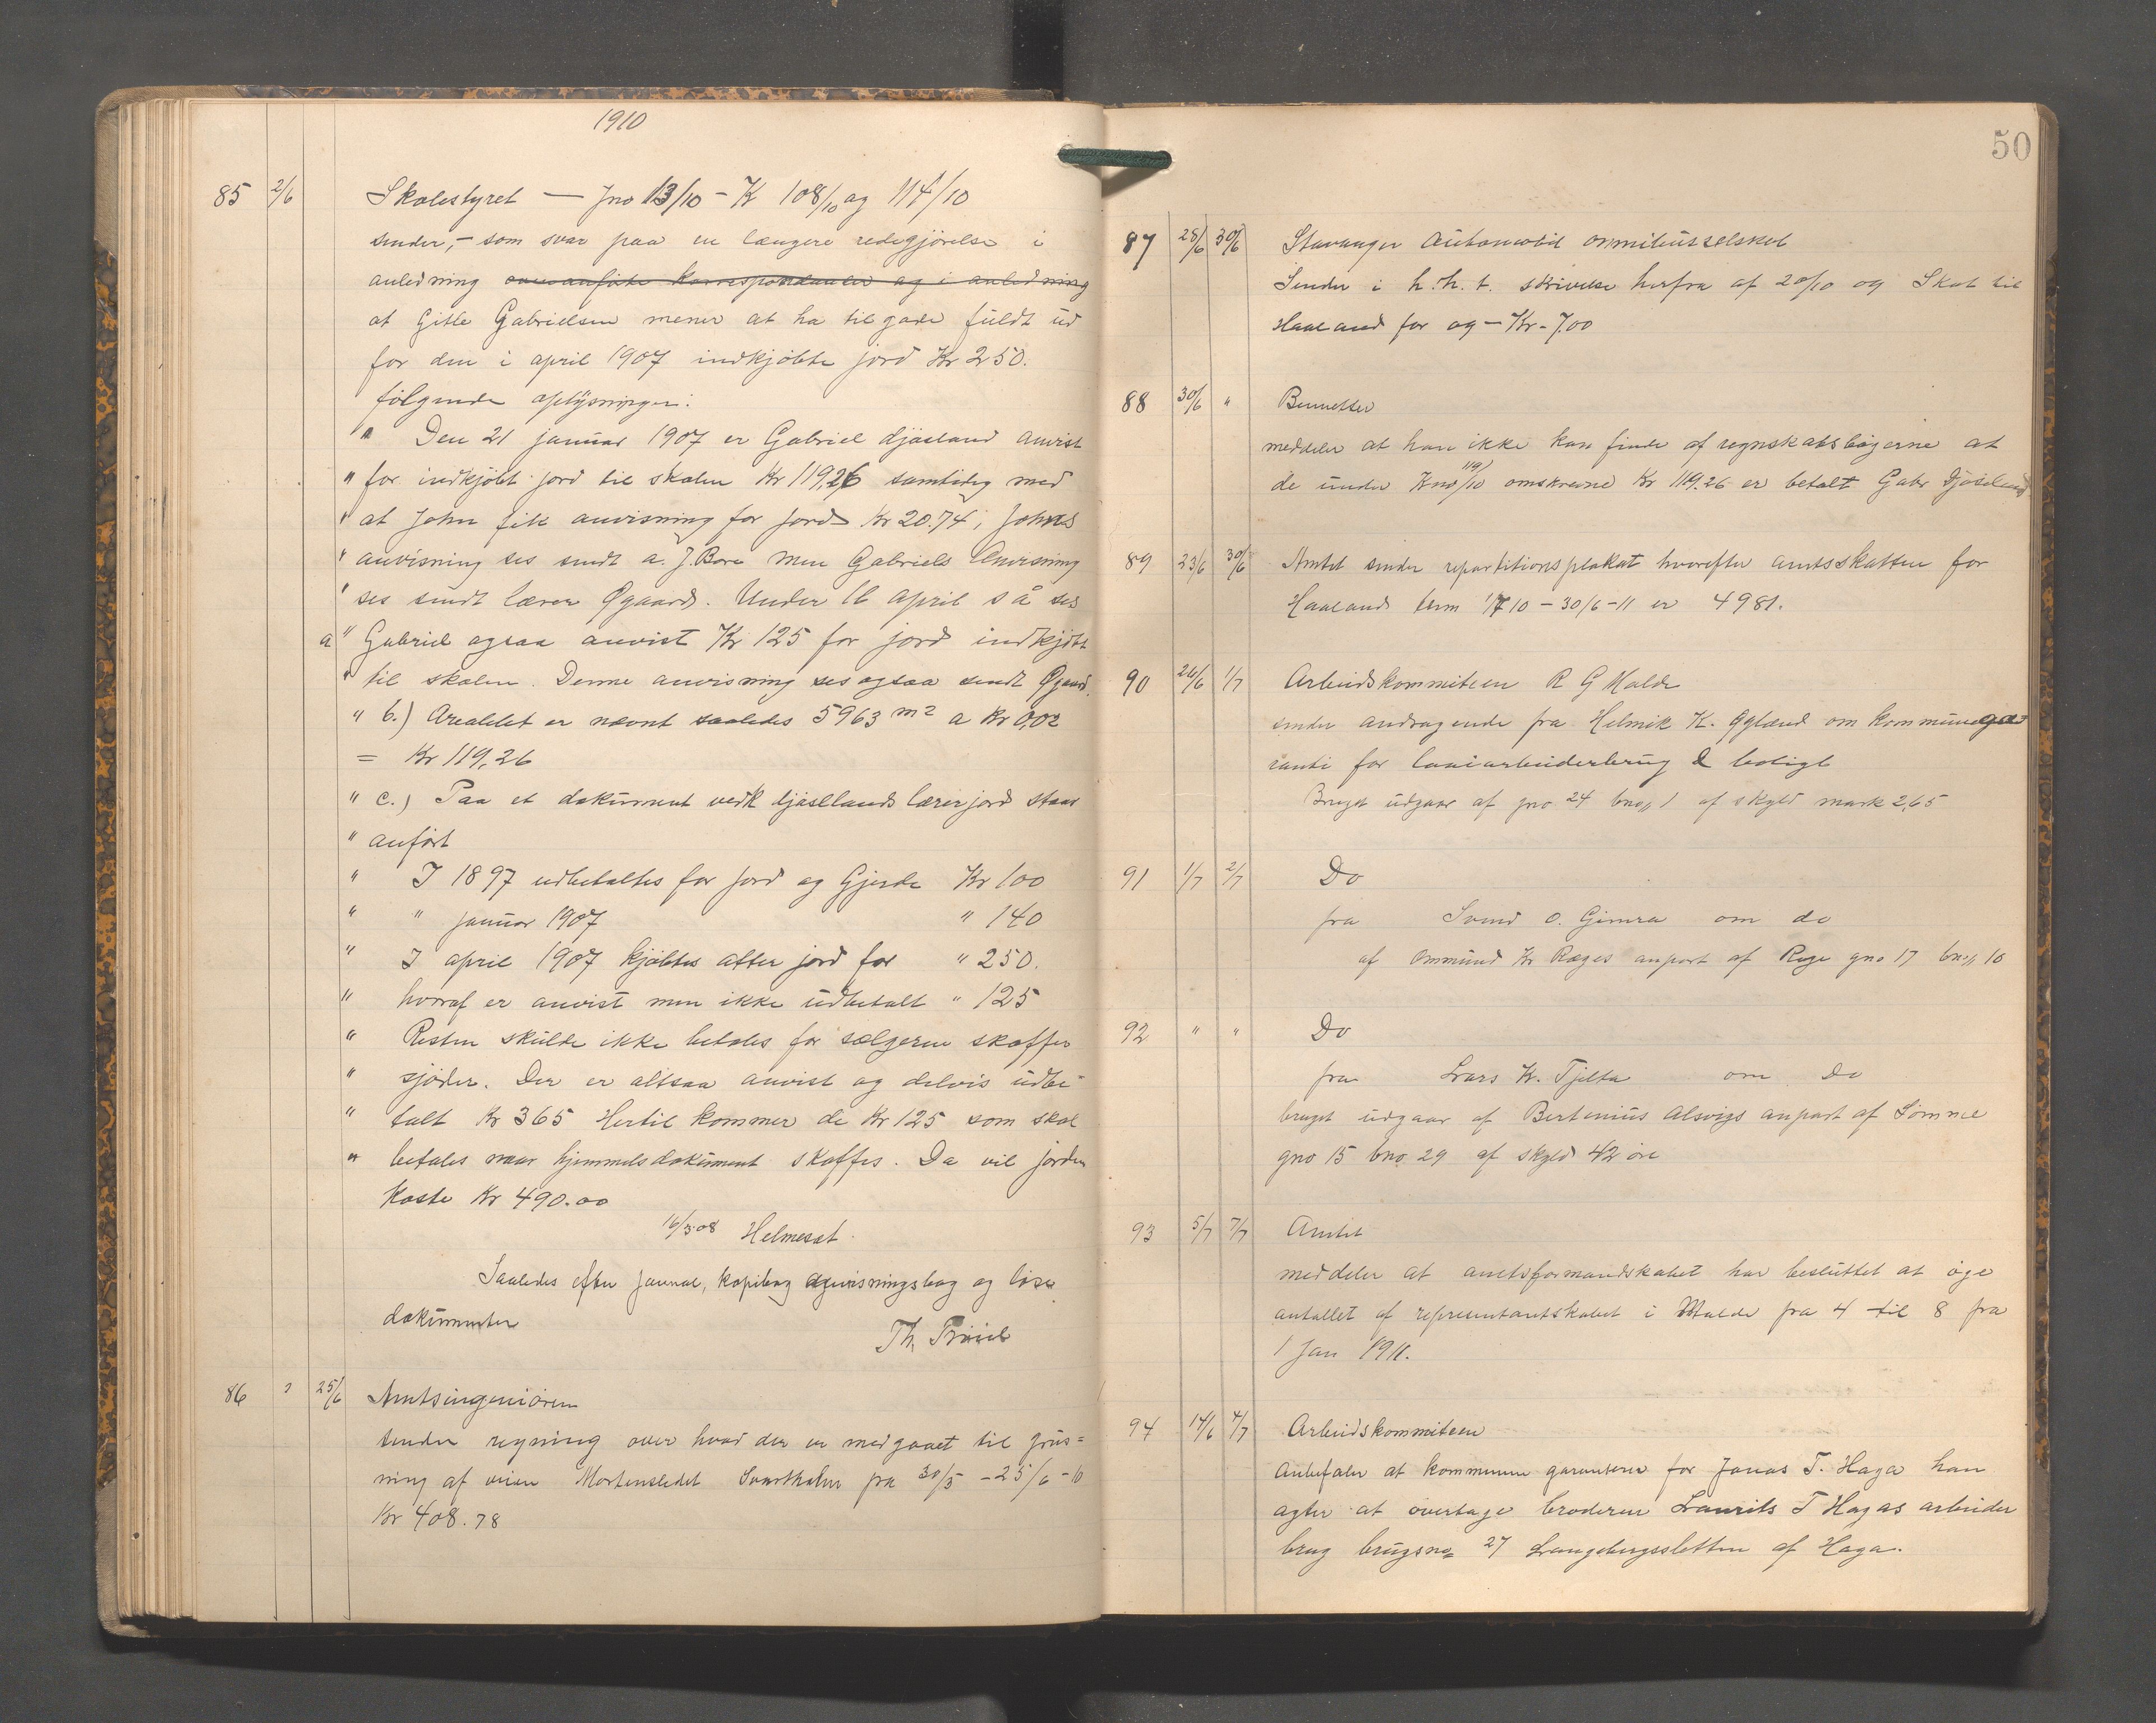 1910
85 2/6 Skolestyret — Jno 13/10 - K 108/10 og 114/10
sender, - som svar paa en længere redegjörelse i
anledning ovenanförte korrespondance og i anledning
at Gitle Gabrielsen mener at ha tilgode fuldt ud
for den i april 1907 indkjöbte jord Kr 250.
fölgende oplysninger:
" Den 21 januar 1907 er Gabriel Djösland anvist
" for indkjöbt jord til skolen Kr 119,26 samtidig med
" at John fik anvisning for jord Kr 20.74, Johns
" anvisning ses sendt a. J. Bore men Gabriels Anvisning
" ses sendt lærer Øgaard. Under 16 april s å ses
a " Gabriel ogsaa anvist Kr 125 for jord indkjöbt
" til skolen. Denne anvisning ses ogsaa sendt Øgaard.
" b.) Arealet er nævnt saaledes 5963 m2 a Kr 0,02
= Kr 119,26
" c.) Paa et dokument vedk Djöslands lærerjord staar
" anfört
" I 1897 udbetaltes for jord og Gjerde Kr 100
" " januar 1907 " 140
" I april 1907 kjöbtes atter jord for " 250.
" hvoraf er anvist men ikke udbetalt " 125
" Resten skulde ikke betales för sælgeren skaffer
" sjöder. Der er altsaa anvist og delvis udbe-
" talt Kr 365 Hertil kommer de Kr 125 som skal
" betales naar hjemmelsdokument skaffes. Da vil jorden
koste Kr 490.00
16/3 08 Helmesat
Saaledes efter journal, kopibog anvisningsbog og löse
dokumenter
Th.
86 " 25/6 Amtsingeniören
sender regning over hvad der er medgaaet til grus=
ning af veien Mortensledet Svartholm fra 30/5 - 25/6 - 10
Kr 408.78
50
87 28/6 30/6 Stavanger Automobil omnibusselskab
Sender i h.h.t. skrivelse herfra af 20/10 og Skat til
Haaland for og - Kr - 7.00
88 30/6 " Bennetter
meddeler at han ikke kan finde af regnskabsbögerne at
de under Kno 119/10 omskrevne Kr 119.26 er betalt Gabr Djösland
89 23/6 30/6 Amtet sender repartitionsplakat hvorefter amtsskatten for
Haaland term 1/7 10 - 30/6 - 11 er 4981.
90 26/6 1/7 Arbeidskommiteen R G Malde
sender andragende fra Helmik K. Øgland om kommunega-
ranti for laan arbeiderbrug & bolig
Bruget udgaar af gno 24 bno 1 af skyld mark 2,65
91 1/7 2/7 Do
fra Svend O. Gimra om do
af Ommund Kr Røges anpart af Rege gno 17 bno 10
92 " " Do
fra Lars Kr. Tjelta om Do
bruget udgaar af Bertinius Alsvigs anpart af Sömme
gno 15 bno 29 af skyld 42 öre
93 5/7 7/7 Amtet
meddeler at amtsformandskabet har besluttet at öge
antallet af representantskabet i Malde fra 4 til 8 fra
1 Jan 1911.
94 14/6 4/7 Arbeidskommiteen
Anbefaler at kommunen garanterer for Jonas T. Haga han
agter at overtage broderen Laurits T Hagas arbeider
brug brugsno 27 Langebergssletten af Haga.